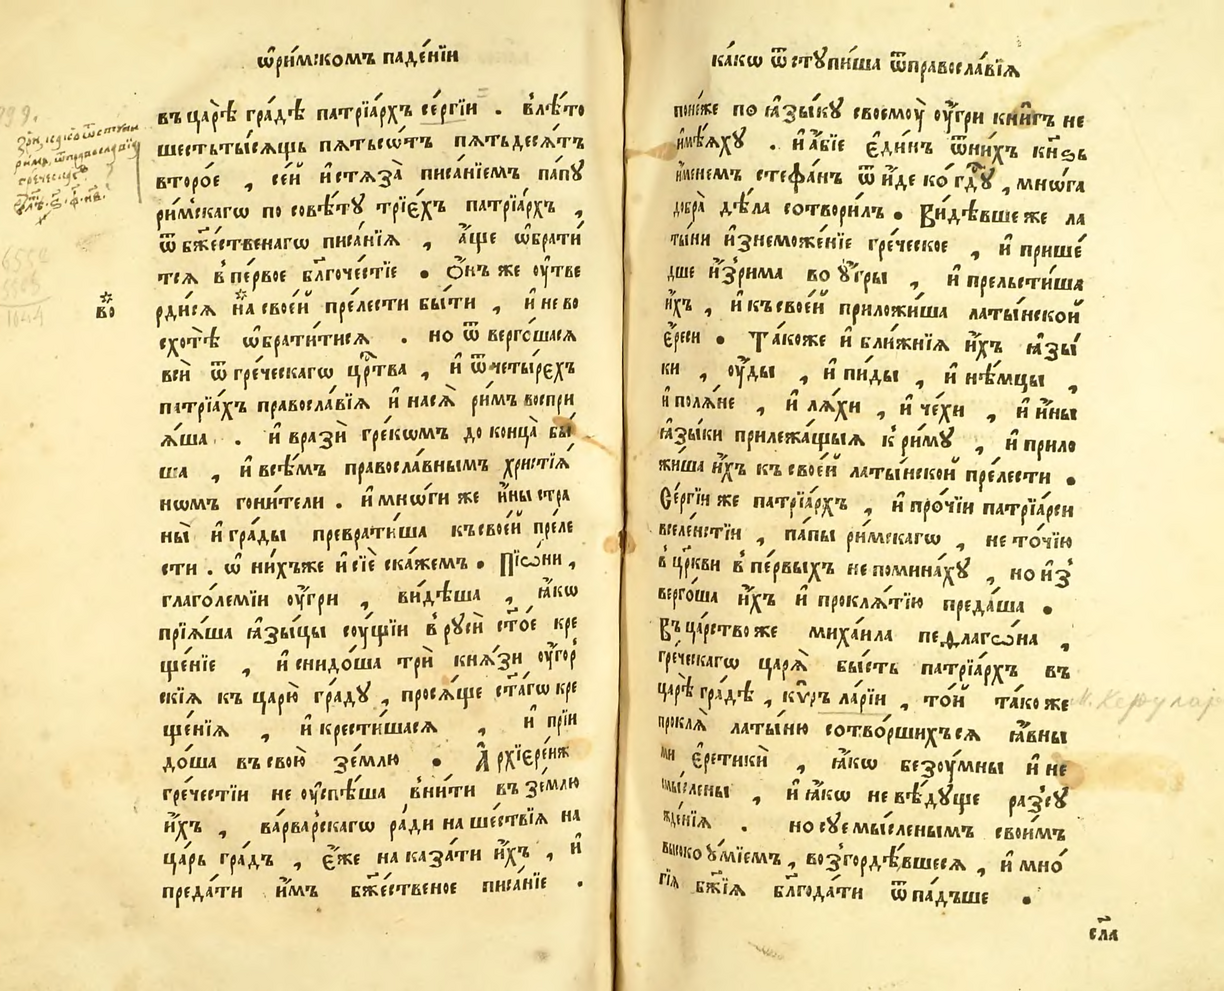 ѡ҆ри́мскомъ паде́нїи
въ царѣ̀ гра́дѣ патрїа́рхъ се́ргїи . влѣ́то
шестьты́сѧщь пѧтьсѡ́тъ пѧтьдесѧ́тъ
второ́е , се́й и҆стѧза̀ писа́нїемъ па́пу
ри́мскагѡ по совѣ́ту трїе́хъ патрїа́рхъ ,
ѿ бж҃е́ственагѡ писа́нїѧ , а҆́ще ѡ҆брати́
тсѧ в пе́рвое бл҃гоче́стїе . Ѻ҆́нъ же оу҆тве
рди́сѧ на своє́й пре́лести бы́ти , и҆ не во
схотѣ̀ ѡ҆брати́тисѧ . но ѿ верго́шасѧ
всѝ ѿ гре́ческагѡ црⷭ҇тва , и҆ ѿ четы́рєхъ
патрїа́хъ правосла́вїѧ и҆ насѧ̀ ри́мъ воспри
ѧ́ша . и҆ вразѝ гре́кѡмъ до конца̀ бы́
ша , и҆ всѣ́мъ правосла́внымъ христїѧ́
нѡмъ гони́тели . и҆ мнѡ́ги же и҆́ны стра
ны̀ и҆ гра́ды преврати́ша къ своє́й пре́ле
сти . ѡ҆ ни́хъже и҆ сїѐ ска́жемъ . Пїѡ́ни ,
глаго́лемїи оу҆́гри , ви́дѣша , ꙗ҆́кѡ
прїѧ́ша ꙗ҆зы́цы соу́щїи в ру́си ст҃о́е кре
ще́нїе , и҆ снидо́ша трѝ кнѧ́зи оу҆го́р
скїѧ къ царю̀ гра́ду , просѧ́ще ст҃а́гѡ кре
ще́нїѧ , и҆ крести́шасѧ , и҆ прїи
до́ша въ свою̀ зе́млю . А҆рхїере́иж
гре́честїи не оу҆спѣ́ша вни́ти въ зе́млю
и҆́хъ , ва́рварскагѡ ра́ди наше́ствїѧ на
ца́рь гра́дъ , є҆́же наказа́ти и҆́хъ , и҆
преда́ти и҆̀мъ бж҃е́ственое писа́нїе .
во
ка́кѡ ѿступи́ша ѿправосла́вїѧ
поне́же по ꙗ҆зы́ку своемоу̀ оу҆́гри кни́гъ не
и҆мѣ́ѧху . и҆ а҆́бїе є҆ди́нъ ѿни́хъ кн҃ѕь
и҆́менемъ стефа́нъ ѿ и҆́де ко гдⷭ҇у , мнѡ́га
добра̀ дѣ́ла сотвори́лъ . Ви́дѣвше же ла
ты́ни и҆знеможе́нїе гре́ческое , и҆ прише́
дше и҆зри́ма во у҆́гры , и҆ прельсти́ша
и҆́хъ , и҆ къ своє́й приложи́ша латы́нской
є҆́реси . Та́коже и҆ бли́жнїѧ и҆́хъ ꙗ҆зы́
ки , оу҆́ды , и҆ пи́ды , и҆ нѣ́мцы ,
и҆ полѧ́не , и҆ лѧ́хи , и҆ че́хи , и҆ и҆́ны
ꙗ҆зы́ки прилежа́щыѧ к ри́му , и҆ прило
жи́ша и҆́хъ къ своє́й латы́нской пре́лести .
Се́ргїи же патрїа́рхъ , и҆ про́чїи патрїа́рси
вселе́нстїи , па́пы ри́мскагѡ , не то́чїю
в цр҃кви в пе́рвыхъ не помина́ху , но и҆з
верго́ша и҆́хъ и҆ проклѧ́тїю преда́ша .
Въ ца́рство же михаи́ла пефлагѡ́на ,
гре́ческагѡ царѧ̀ бы́сть патрїа́рхъ въ
царѣ̀ гра́дѣ , кѵ́ръ ла́рїи , то́й та́коже
проклѧ̀ латы́ню сотво́ршихъсѧ ꙗ҆́вны
ми є҆ретикѝ , ꙗ҆́кѡ безоу́мны и҆ не
смы́слены , и҆ ꙗ҆́кѡ не вѣ́дуще разсу
жде́нїѧ . но суемы́сленымъ свои́мъ
высокоу́мїемъ , возгордѣ́вшеесѧ , и҆ мно́
гїѧ бж҃їѧ бл҃года́ти ѿпа́дъше .
сл҃а